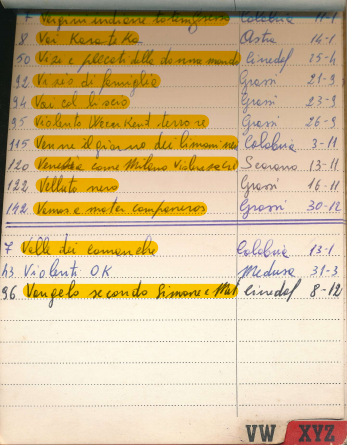 7 Vergini indiane Colobria 11-1
8 Vai Karateka Astra 14-1
50 Vizi e peccati delle donne nel mondo Cinedef 15-4
92 Vizio di famiglia Grassi 21-9
94 Vai col liscio Grassi 23-9
95 Violento Weekend terrore Grassi 26-9
115 Venne il giorno dei limoni neri Colobria 3-11
120 come Milano Violenta Scorano 13-11
122 Velluto nero Grassi 16-11
142 Vamos a matar companeros Grassi 30-12
7 Valle dei comanche Colobria 13-1
43 Violenti OK Medusa 31-3
96 Vangelo secondo Simone e Mat Cinedef 8-12
VW XYZ